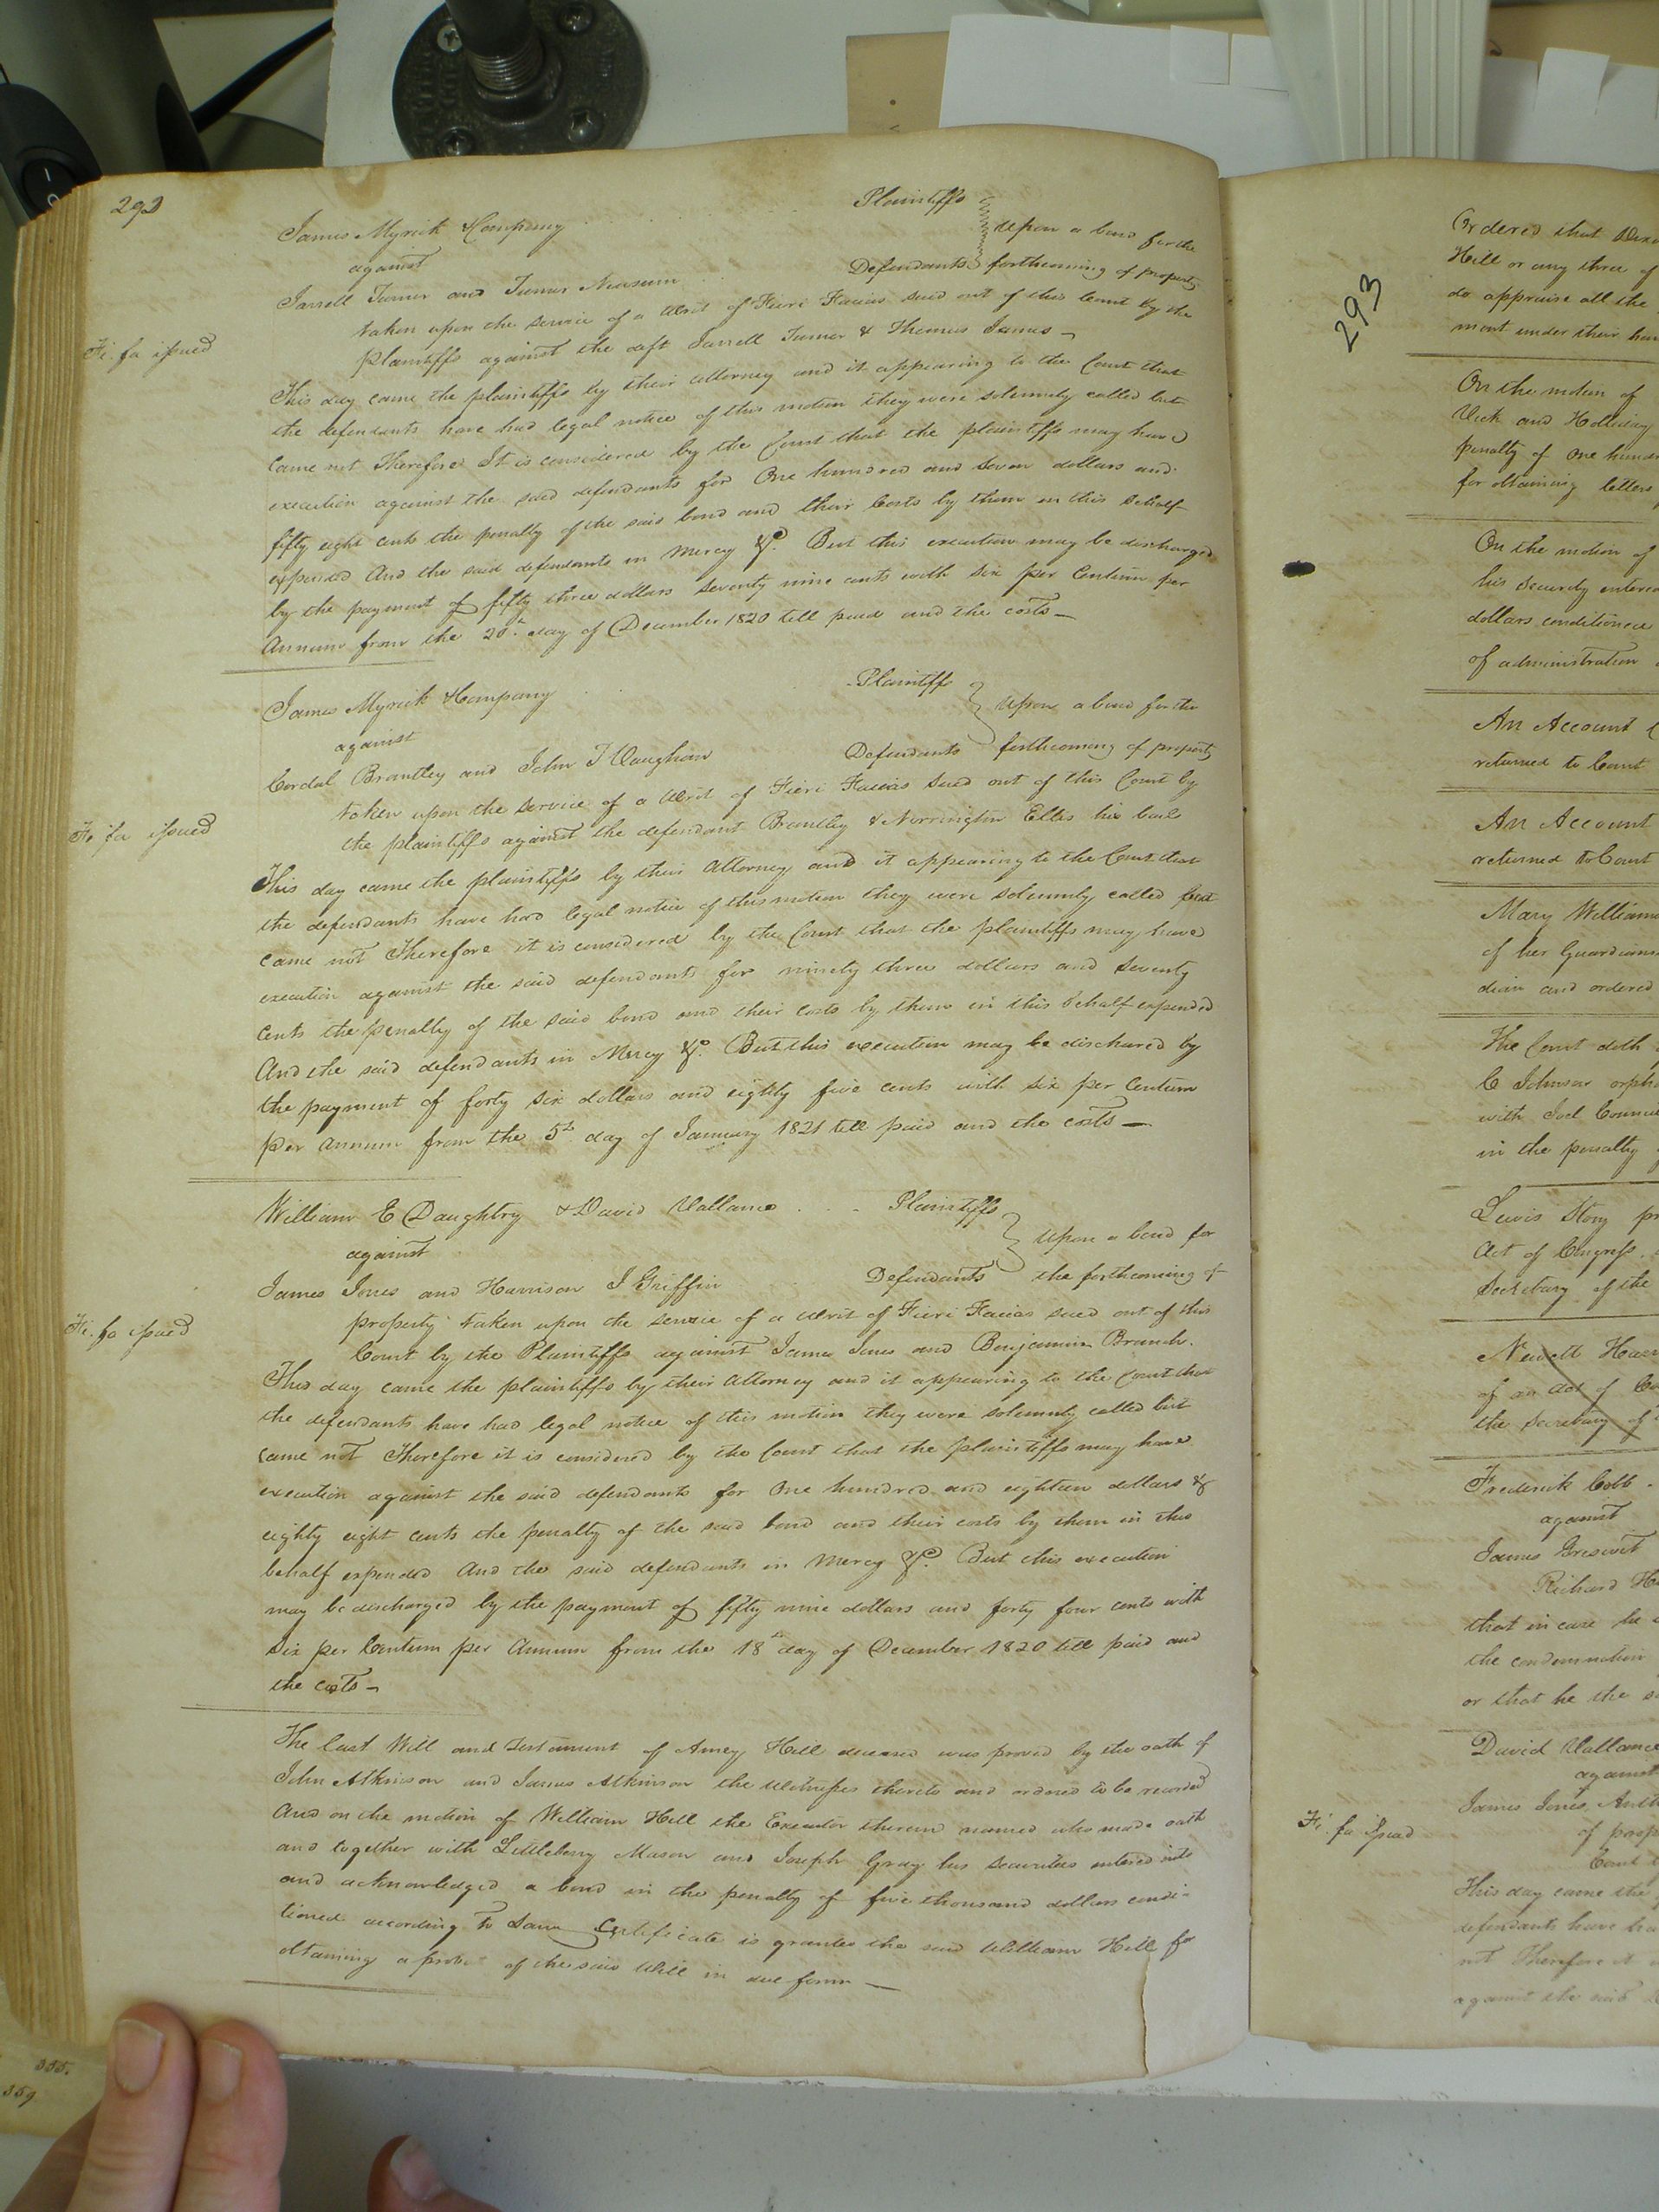 292
James Myrick & Company Plaintiffs
against Upon a bond for the
Jarrell Turner and Turner Newsum Defendants forthcoming of property
taken upon the service of a Writ of Fieri Facias sued out of this Court by the
Fi. fa issued
plaintiffs against the deft Jarrell Turner & Thomas James
This day came the plaintiffs by their attorney and it appearing to the Court that
the defendants have had legal notice of this motion they were solemnly called but
Came not Therefore It is considered by the Court that the plaintiffs may have
execution against the said defendants for One hundred and Seven dollars and
fifty eight cents the penalty of the said bond and their Costs by them in this behalf
expended And the said defendants in Mercy &c. But this execution may be discharged
by the payment of fifty three dollars Seventy nine cents with Six per Centum per
Annum from the 20th day of December 1820 till paid and the costs
James Myrick & Company Plaintiffs
against Upon a bond for the
Cordal Brantley and John T Vaughan Defendants forthcoming of property
taken upon the service of a Writ of Fieri Facias sued out of this Court by
Fi fa issued
the plaintiffs against the defendant Brantley & Norrington Ellis his bail
This day came the plaintiffs by their Attorney and it appearing to the Court that
the defendants have had legal notice of this motion they were solemnly called but
came not Therefore it is considered by the Court that the plaintiffs may have
execution against the said defendants for ninety three dollars and Seventy
Cents the penalty of the said bond and their costs by them in this behalf expended
And the said defendants in Mercy &c. But this execution may be dischared by
the payment of forty six dollars and eighty five cents with six per Centum
per annum from the 5th day of January 1821 till paid and the costs
William E Daughtry & David Vallance Plaintiffs
against Upon a bond for
James Jones and Harrison J Griffin Defendants the forthcoming of
Fi. fa issued
property taken upon the service of a Writ of Fieri Facias sued out of this
Court by the Plaintiffs against James Jones and Benjamin Branch.
This day came the plaintiffs by their attorney and it appearing to the Court that
the defendants have had legal notice of this motion they were solemnly called but
came not Therefore it is considered by the Court that the plaintiffs may have
execution against the said defendants for One hundred and eighteen dollars &
eighty eight cents the penalty of the said bond and their costs by them in this
behalf expended And the said defendants in Mercy &c. But this execution
may be discharged by the payment of fifty nine dollars and forty four cents with
Six per Centum per Annum from the 18th day of December 1820 till paid and
the costs
The last Will and Testament of Amey Hill deceased was proved by the oath of
John Atkinson and James Atkinson the Witnesses thereto and ordered to be recorded
And on the motion of William Hill the Executor therein named who made oath
and together with Littleberry Mason and Joseph Gray his Securities entered into
and acknowledged a bond in the penalty of five thousand dollars condi-
tioned according to Law Certificate is granted the said William Hill for
obtaining a probat of the said Will in due form
355.
359
293
Ordered that
Hill or any three of
do appraise all the
ment under their
On the motion of
Vick and Holliday
penalty of One
for obtaining letters
On the motion of
his Security
dollars conditioned
of administration
An Account
returned to Court
An Account
returned to Court
Mary
of her
dian and ordered
The Court doth
C Johnson
with Joel
in the penalty
Lewis Story
Act of Congress.
Secretary of the
Newett
of an Act of
the Secretary of
Frederick Cobb
against
James
Richard
that in case he
the condemnation
or that he the
David Vallance
against
James Jones,
Fi. fa issued
of
Court
This day came the
defendants have
not Therefore it
against the said